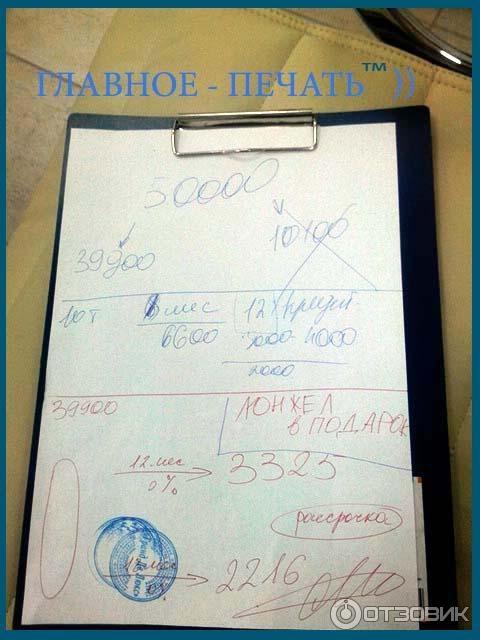 ГЛАВНОЕ - ПЕЧАТЬ™ ))
50000
10100
39900
10т 6 мес 12 кредит
6600 4000
2000
39900 ЛОНЖЕЛ
в ПОДАРОК
12 мес 3325
0%
рассрочка
18 мес 2216
0%
ОТЗОВИК